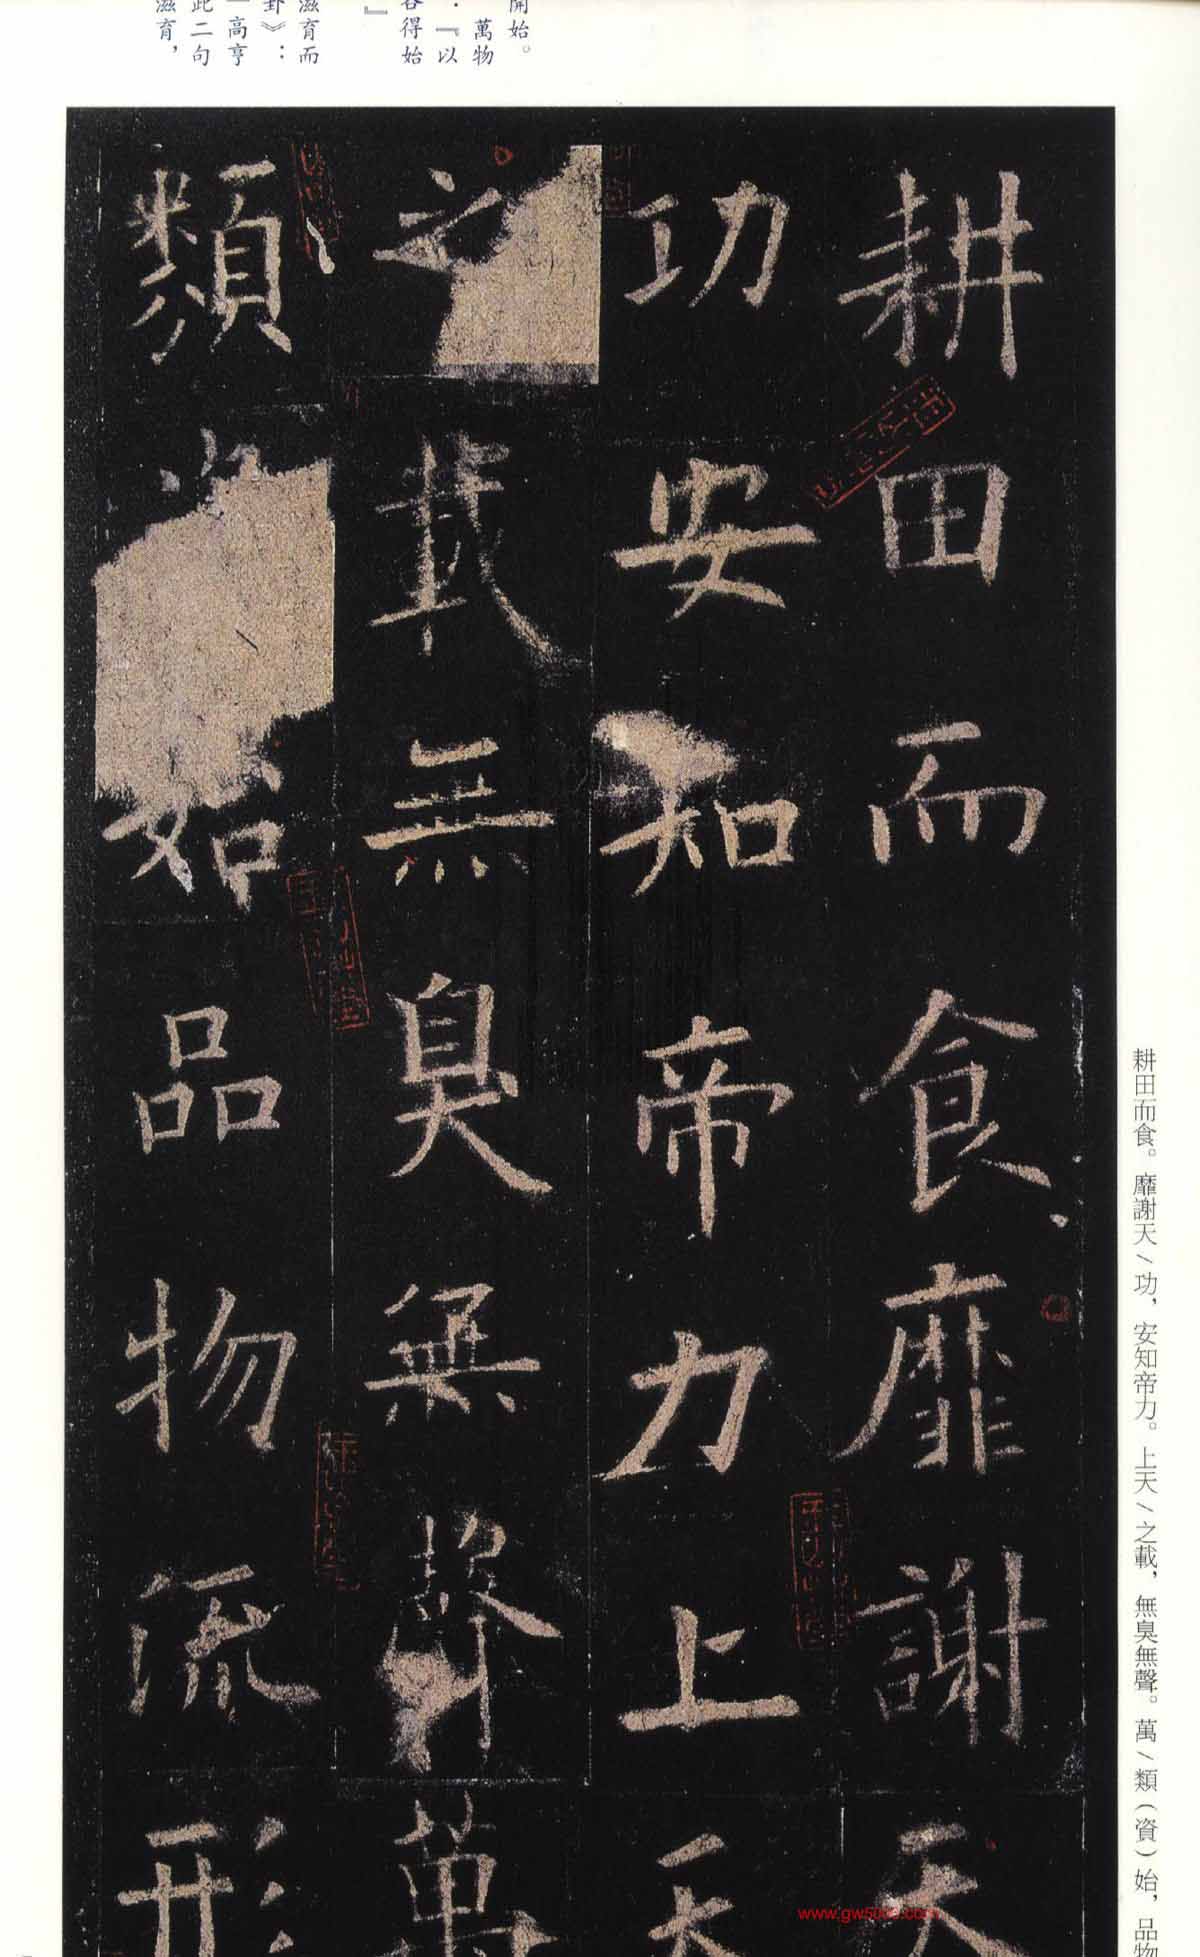 開始。
萬物
：『以
容得始
』
滋育而
卦》：
高亨
此二句
滋育，
耕田而食靡謝天
功安知帝力上天
之載無臭無聲萬
類始品物流形
耕田而食。靡謝天／功，安知帝力。上天／之載，無臭無聲。萬／類（資）始，品物
www.gw5000.com